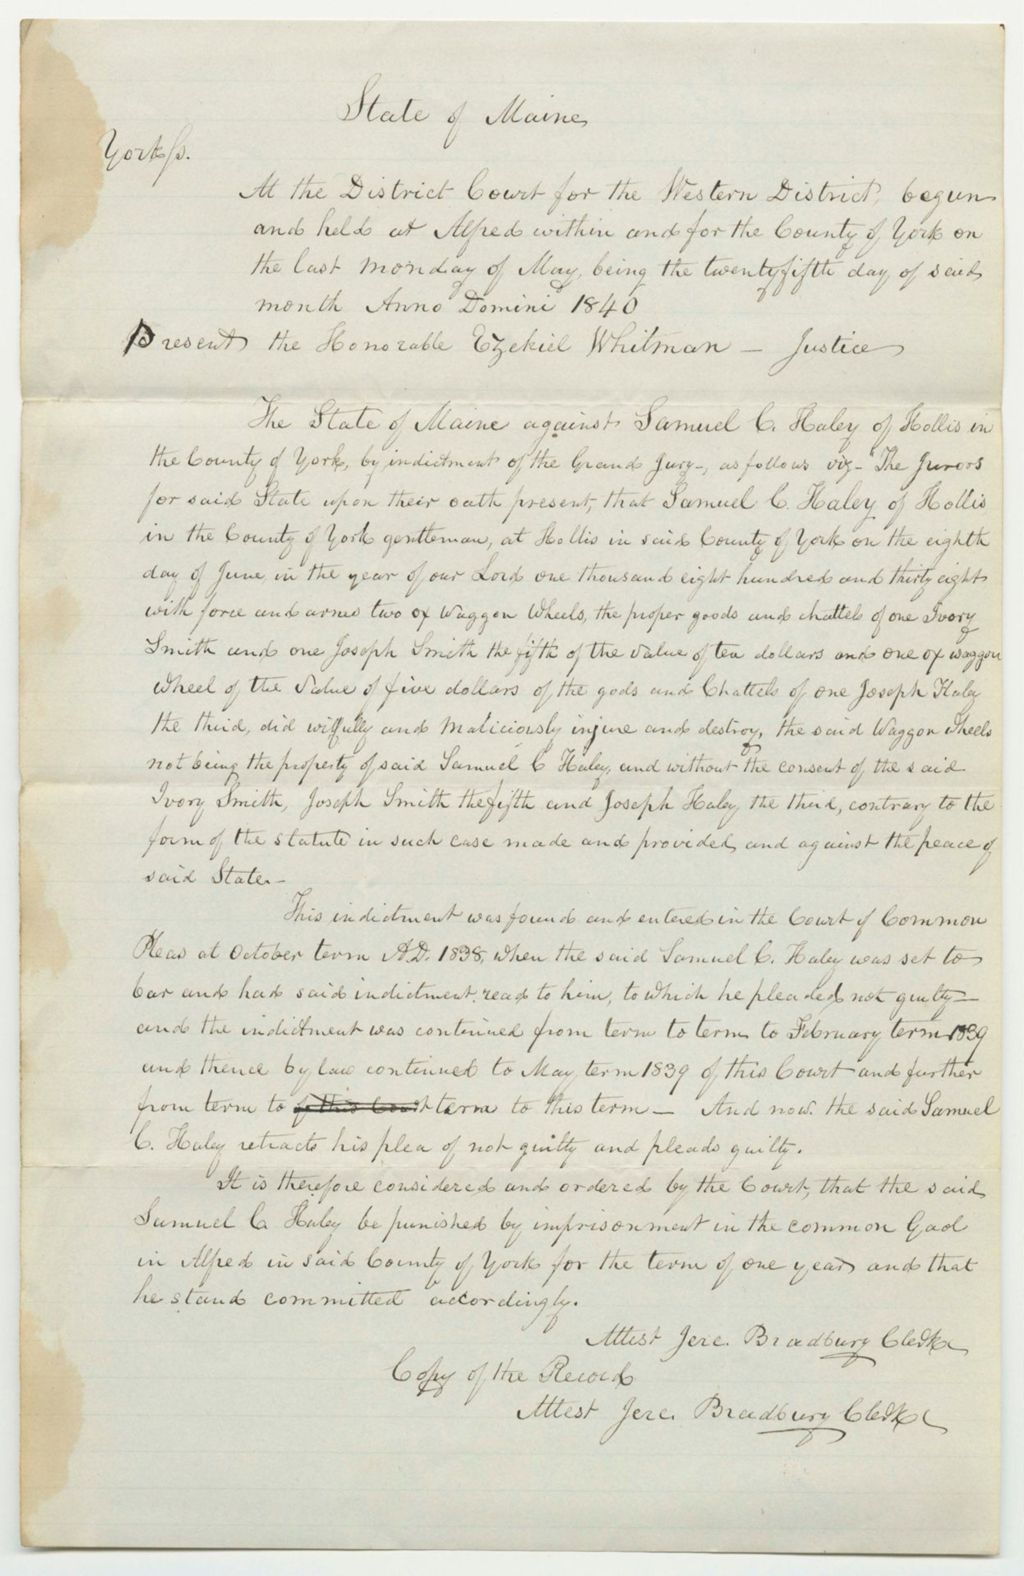 State of Maine
York ss.
At the District Court for the Western District, begun
and held at Alfred within and for the County of York on
the last Monday of May, being the twenty fifth day of said
month Anno Domini 1840
Present the Honorable Ezekiel Whitman – Justice
The State of Maine against Samuel C. Haley of Hollis in
the County of York, by indictment of the Grand Jury –, as follows viz – "The Jurors
for said State upon their oath present, that Samuel C. Haley of Hollis
in the County of York gentleman, at Hollis in said County of York on the eighth
day of June in the year of our Lord one thousand eight hundred and thirty eight
with force and arms two ox waggon Wheels, the proper goods and chattels of one Ivory
Smith and one Joseph Smith the fifth of the value of ten dollars and one ox waggon
wheel of the value of five dollars of the gods and Chattels of one Joseph Haley
the third, did wilfully and maliciously injure and destroy, the said Waggon Wheels
not being the property of said Samuel C Haley, and without the consent of the said
Ivory Smith, Joseph Smith the fifth and Joseph Haley the third, contrary to the
form of the statute in such case made and provided, and against the peace of
said State. –
This indictment was found and entered in the Court of Common
Pleas at October term A.D. 1838, when the said Samuel C. Haley was set to
bar and had said indictment read to him, to which he pleaded not guilty –
and the indictment was continued from term to term to February term 1839
and thence by law continued to May term 1839 of this Court and further
from term to of this Court term to this term – And now the said Samuel
C. Haley retracts his plea of not guilty and pleads guilty.
It is therefore considered and ordered by the Court, that the said
Samuel C Haley be punished by imprisonment in the common Gaol
in Alfred in said County of York for the term of one year and that
he stand committed accordingly.
Attest Jere. Bradbury Clerk
Copy of the Record
Attest Jere. Bradbury Clerk